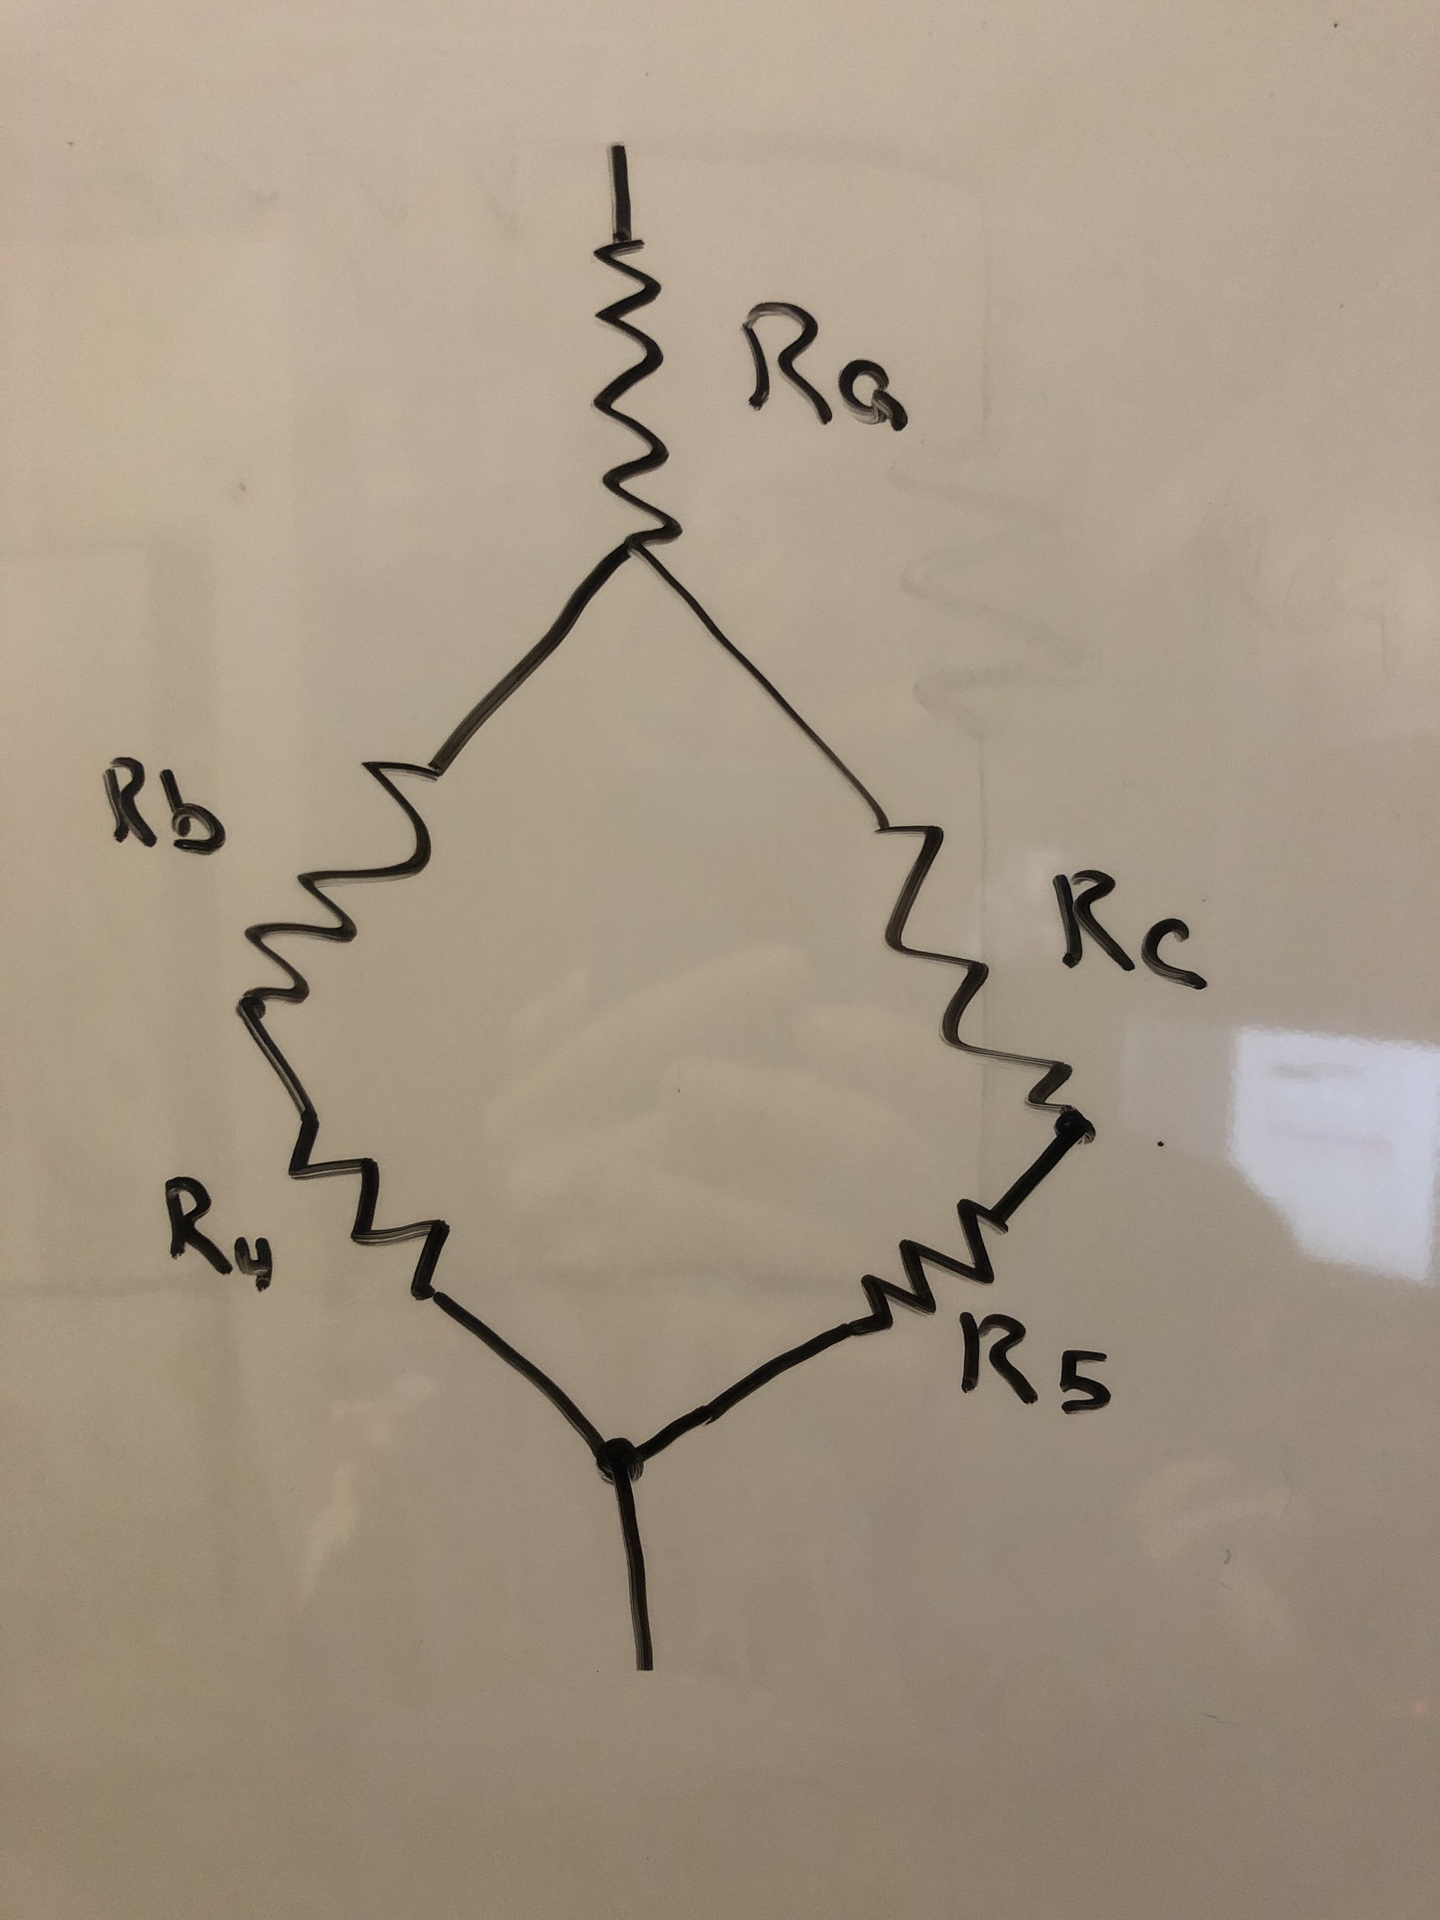 Ra
Rb
Rc
R4
R5